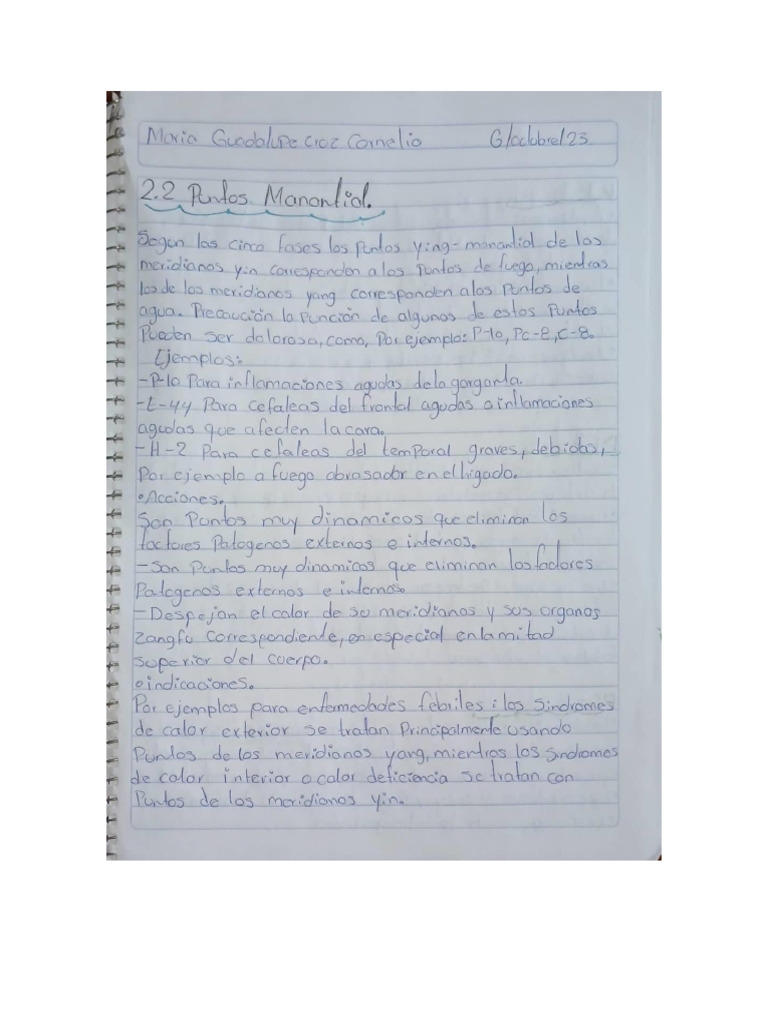 Maria Guadalupe Croz Cornelio 6/octobre/23
2.2 Puntos Manantial.
Segun las cinco fases los puntos ying-manantial de los
meridianos yin corresponden a los puntos de fuego, mientras
los de los meridianos yang corresponden a los puntos de
agua. Precaución la punción de algunos de estos puntos
Pueden ser dolorosa, como, por ejemplo: P-10, Pc-8, C-8.
Ejemplos:
-P-10 Para inflamaciones agudas de la garganta.
-E-44 Para cefaleas del frontal agudas o inflamaciones
agudas que afecten la cara.
-H-2 Para cefaleas del temporal graves, debidas,
Por ejemplo a fuego abrasador en el higado.
•Acciones.
Son Puntos muy dinamicos que eliminan los
factores Patogenos externos e internos.
-Son Puntos muy dinamicos que eliminan los factores
Patogenos externos e internos
-Despejan el calor de su meridianos y sus organos
Zangfu correspondiente, en especial en la mitad
superior del cuerpo.
•indicaciones.
Por ejemplos para enfermedades febriles: los Sindromes
de calor exterior se tratan Principalmente usando
Puntos de los meridianos yang, mientros los Sindromes
de calor interior o calor deficiencia se tratan con
Puntos de los meridianos yin.